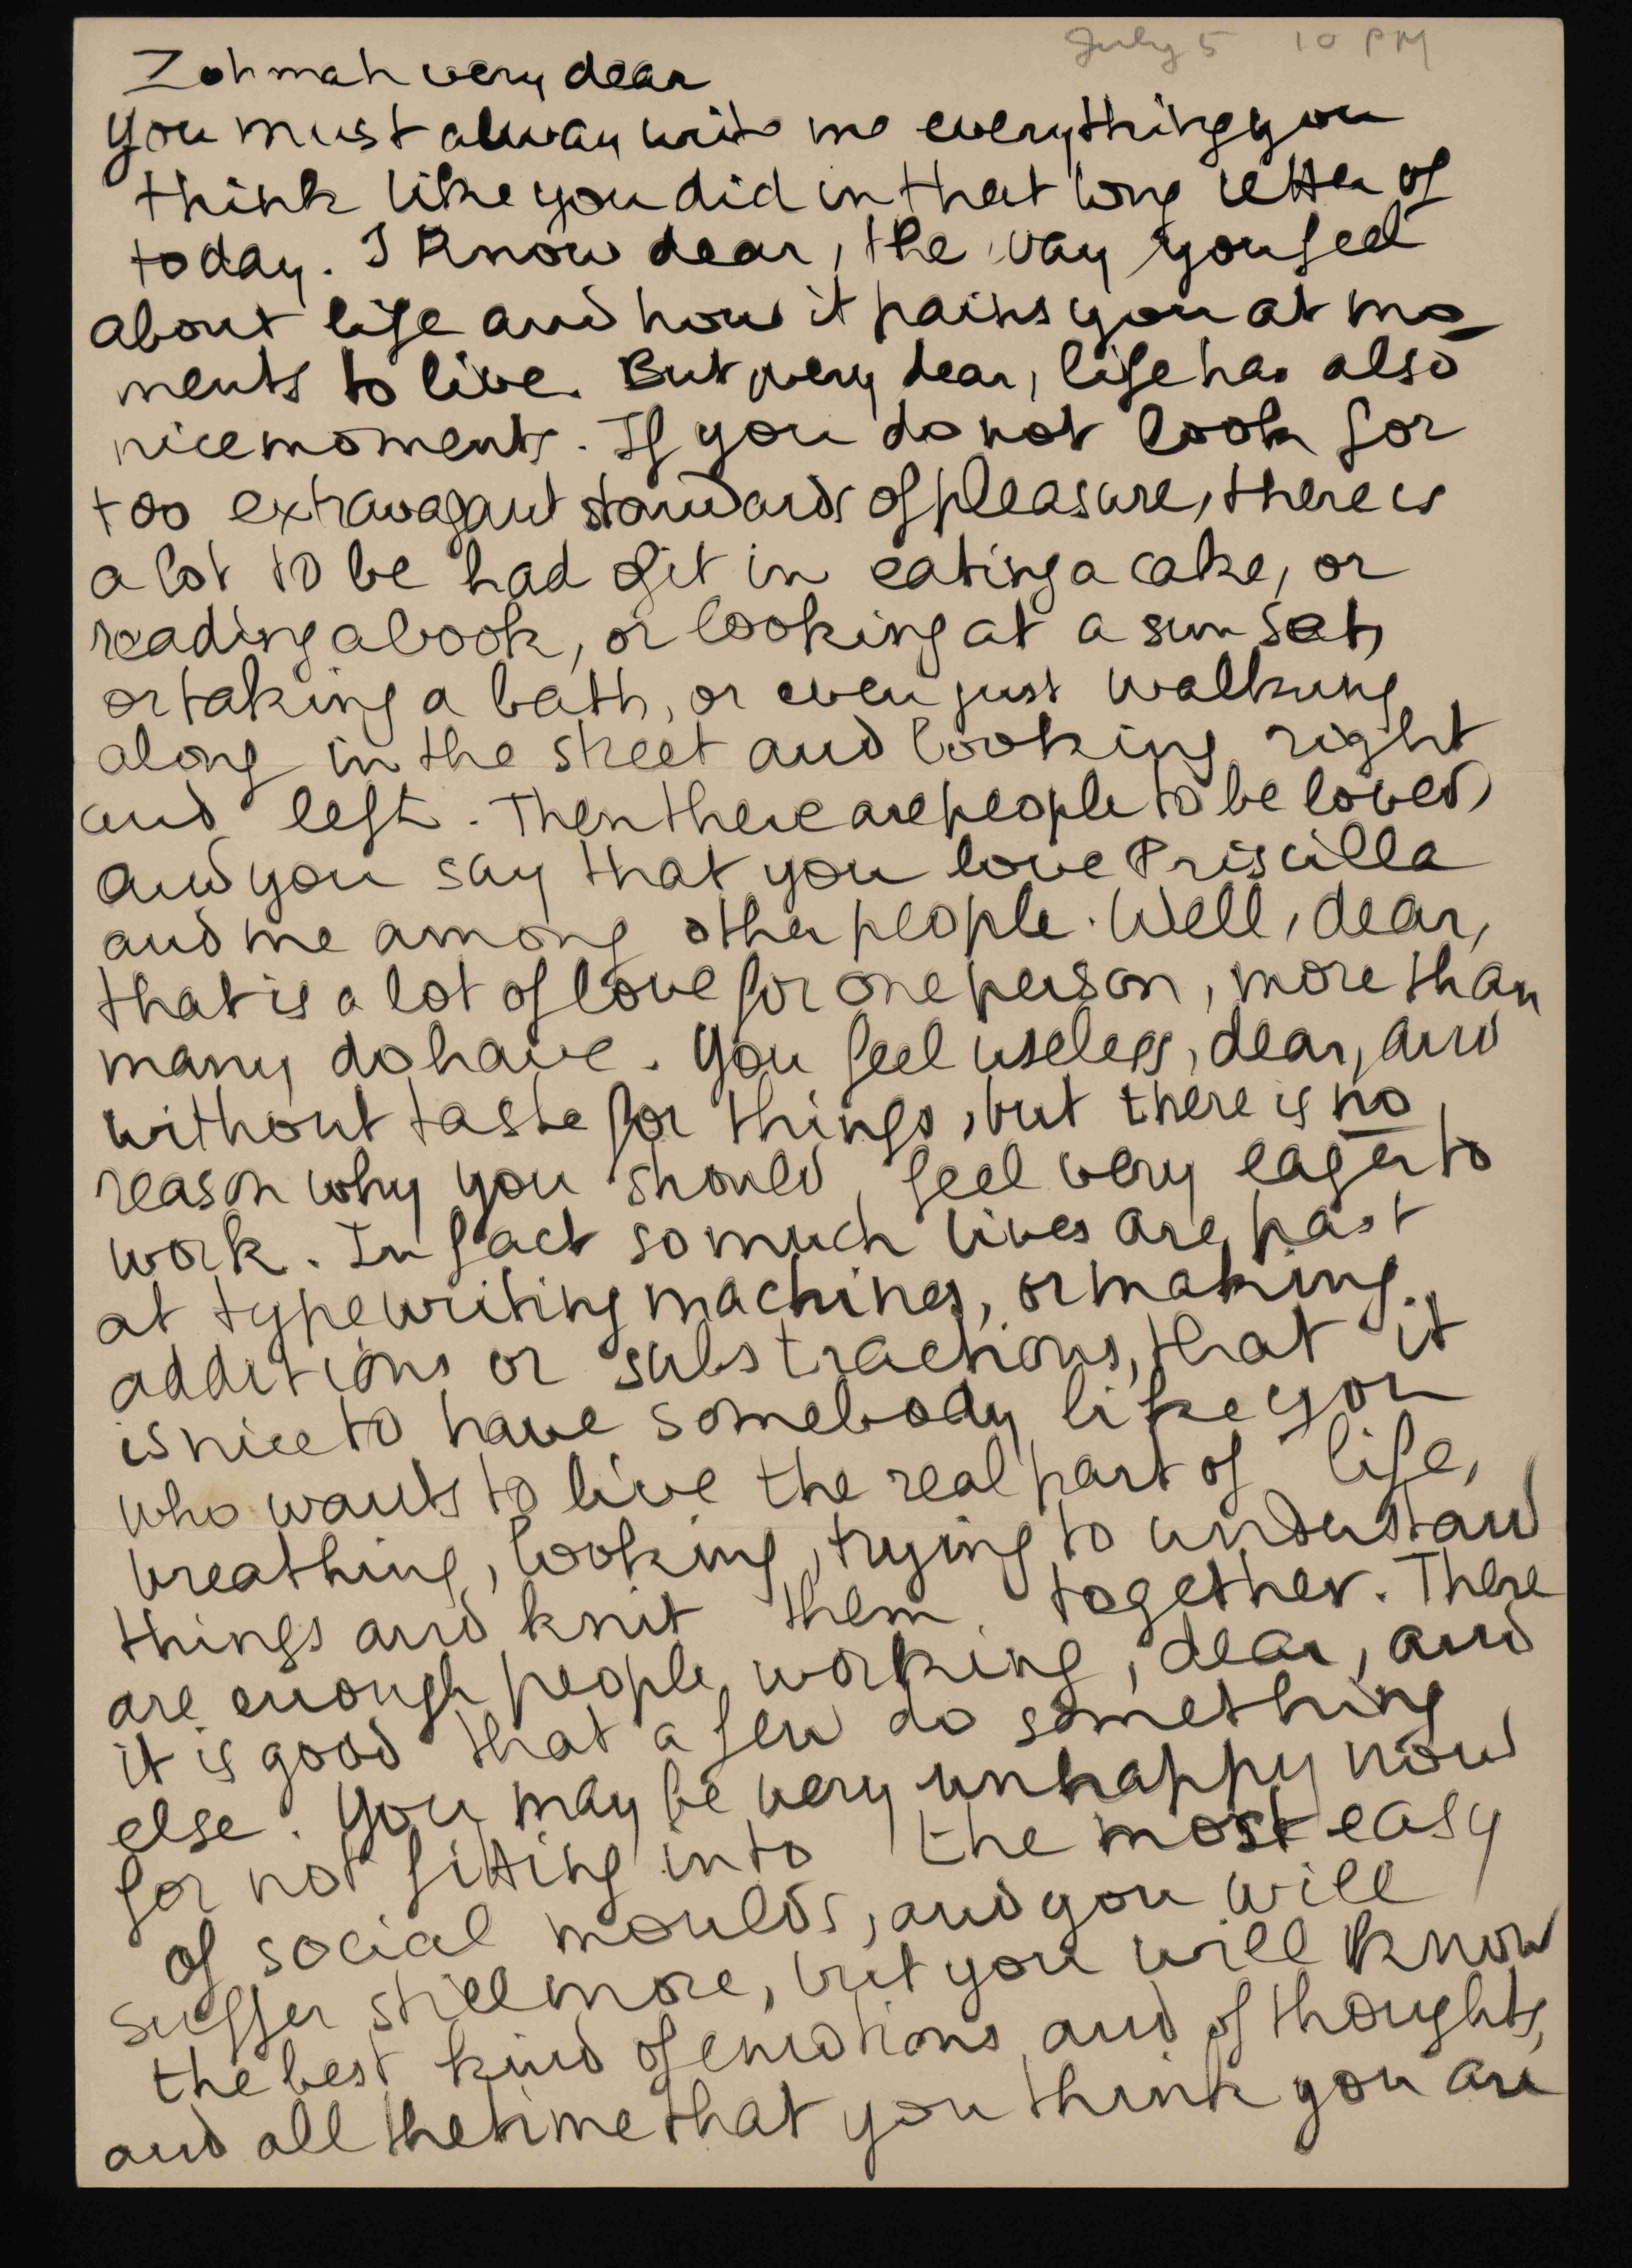 July 5 10 PM
Zohmah very dear
you must alway write me everything you
think like you did in that long letter of
today. I know dear, the way you feel
about life and how it pains you at mo-
ments to live. But very dear, life has also
nice moments. If you do not look for
too extravagant standards of pleasure, there is
a lot to be had of it in eating a cake, or
reading a book, or looking at a sun set,
or taking a bath, or even just walking
along in the street and looking right
and left. Then there are people to be loved,
and you say that you love Priscilla
and me among other people. Well, dear,
that is a lot of love for one person, more than
many do have. You feel useless, dear, and
without taste for things, but there is no
reason why you should feel very eager to
work. In fact so much lives are past
at typewriting machines, or making
additions or substractions, that it
is nice to have somebody like you
who wants to live the real part of life,
breathing, looking, trying to understand
things and knit them together. There
are enough people working, dear, and
it is good that a few do something
else. You may be very unhappy now
for not fitting into the most easy
of social moulds, and you will
suffer still more, but you will know
the best kind of emotions and of thoughts,
and all the time that you think you are